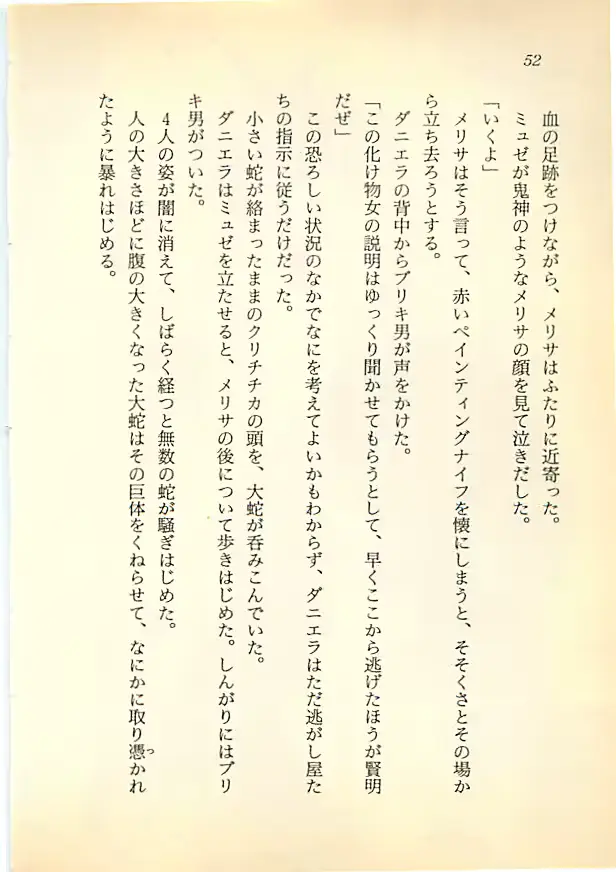 52
血の足跡をつけながら、メリサはふたりに近寄った。
ミュゼが鬼神のようなメリサの顔を見て泣きだした。
「いくよ」
メリサはそう言って、赤いペインティングナイフを懐にしまうと、そそくさとその場か
ら立ち去ろうとする。
ダニエラの背中からブリキ男が声をかけた。
「この化け物女の説明はゆっくり聞かせてもらうとして、早くここから逃げたほうが賢明
だぜ」
この恐ろしい状況のなかでなにを考えてよいかもわからず、ダニエラはただ逃がし屋た
ちの指示に従うだけだった。
小さい蛇が絡まったままのクリチチカの頭を、大蛇が呑みこんでいた。
ダニエラはミュゼを立たせると、メリサの後について歩きはじめた。しんがりにはブリ
キ男がついた。
4人の姿が闇に消えて、しばらく経つと無数の蛇が騒ぎはじめた。
人の大きさほどに腹の大きくなった大蛇はその巨体をくねらせて、なにかに取り憑かれ
たように暴れはじめる。